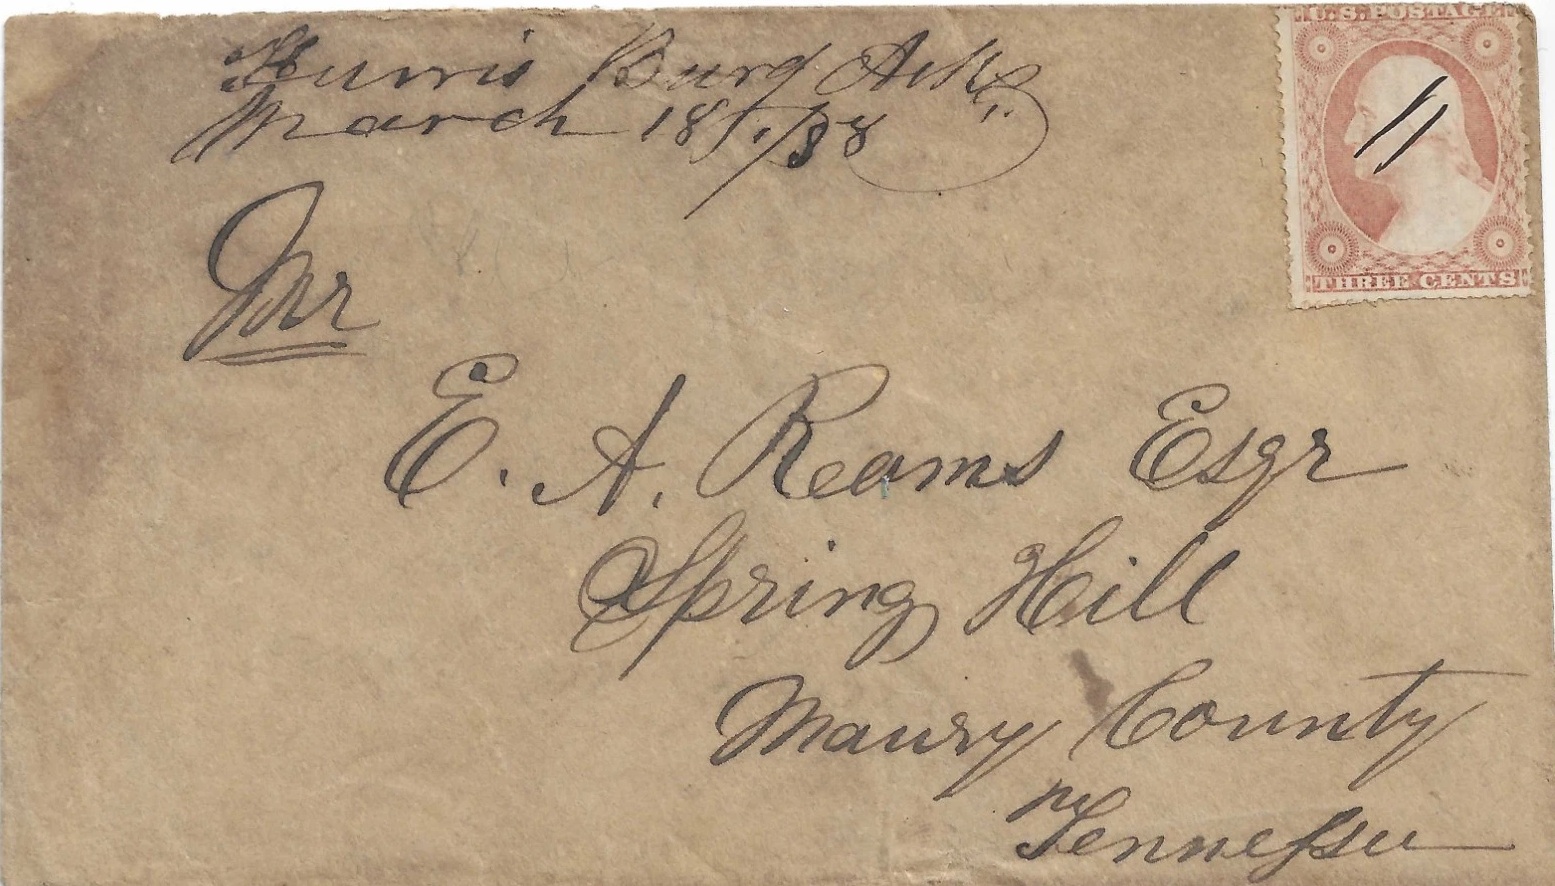 Hurris Burg Arks.
March 18th/58
U.S. POSTAGE
Mr
E. A. Reams Esqr
Spring Hill
Maury County
Tennessee
THREE CENTS